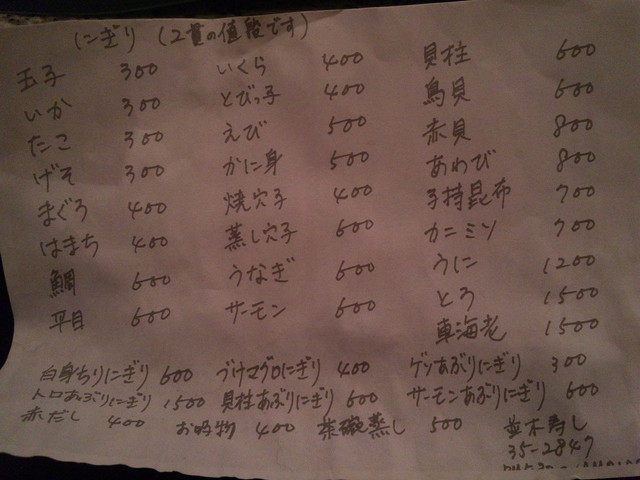 にぎり (2貫の値段です)
玉子 300 いくら 400 貝柱 600
いか 300 とびっ子 400 鳥貝 600
たこ 300 えび 500 赤貝 800
げそ 300 かに身 500 あわび 800
まぐろ 400 焼穴子 400 子持昆布 700
はまち 400 蒸し穴子 600 カニミソ 700
鯛 600 うなぎ 600 うに 1200
平目 600 サーモン 600 とろ 1500
車海老 1500
白身ちりにぎり 600 づけマグロにぎり 400 ゲソあぶりにぎり 300
トロあぶりにぎり 1500 貝柱あぶりにぎり 600 サーモンあぶりにぎり 600
赤だし 400 お吸物 400 茶碗蒸し 500 並木寿し
35-2847